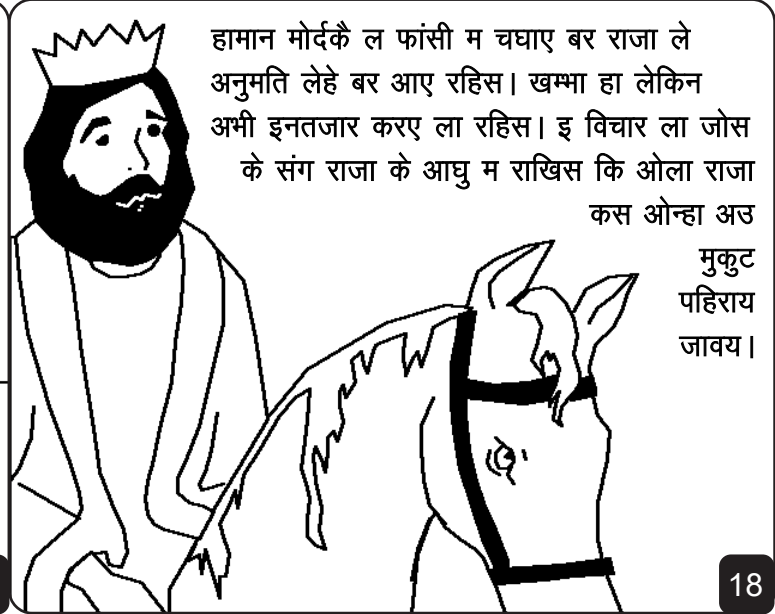 हामान मोर्दकै ल फांसी म चघाए बर राजा ले
अनुमति लेहे बर आए रहिस। खम्भा हा लेकिन
अभी इनतजार करए ला रहिस। इ विचार ला जोस
के संग राजा के आघु म राखिस कि ओला राजा
कस ओन्हा अउ
मुकुट
पहिराय
जावय।
18